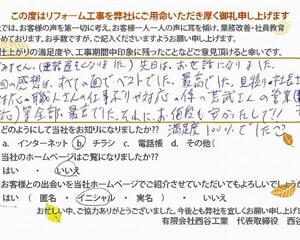 この度はリフォーム工事を弊社にご用命いただき厚く御礼申し上げます
では、お客様の声を第一切に考え、お客様一人一人の声に耳を傾け、業務改善・社員教育
ております。お手数ですが、ご記入くださいますようお願い申し上げます。
仕上がりの満足度や、工事期間中印象に残ったことなどご意見頂けると幸いです。
先日は、お世話になりました。
の感想は、すべての面でベストでした。最高でした。見積りの
の職人さんの仕事ぶりや対応
満足度100%でした
どのようにして当社をお知りになりましたか??
a. インターネット b チラシ c. 電話帳 d. その他(
当社のホームページはご覧になりましたか??
はい ・ いいえ
お客様との出会いを当社ホームページでご紹介させていただいてもよろしいでしょうか
はい ( 匿名 ・ イニシャル ・ 実名 ) ・ いいえ
お忙しい中、ご協力ありがとうございました。今後とも弊社を宜しくお願い申し上げ
有限会社西谷工業 代表取締役 西谷